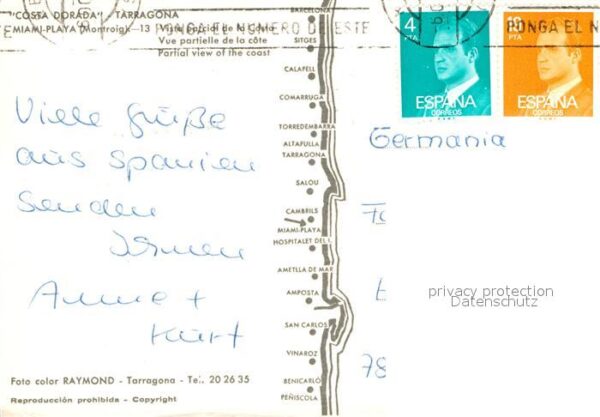 "COSTA DORADA" - TARRAGONA
MIAMI-PLAYA (Montroig)—13
Vista parcial de la Costa
Vue partielle de la côte
Partial view of the coast
BARCELONA
SITGES
CALAFELL
COMARRUGA
TORREDEMBARRA
ALTAFULLA
TARRAGONA
SALOU
CAMBRILS
MIAMI-PLAYA
HOSPITALET DEL I.
AMETLLA DE MAR
AMPOSTA
SAN CARLOS
VINAROZ
BENICARLÓ
PEÑISCOLA
4
PTA
ESPAÑA
CORREOS
PTA
ESPAÑA
CORREOS
PONGA EL N
Viele Grüße
aus Spanien
senden
Ihnen
Anne +
Kurt
Germania
78
privacy protection
Datenschutz
Foto color RAYMOND - Tarragona - Tel. 20 26 35
Reproducción prohibida - Copyright